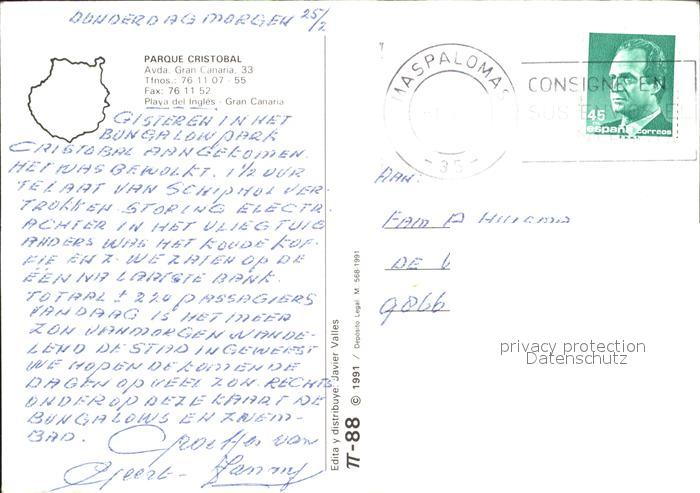 DONDERDAG MORGEN 25/2
PARQUE CRISTOBAL
Avda. Gran Canaria, 33
Tfnos.: 76 11 07 - 55
Fax: 76 11 52
Playa del Inglés - Gran Canaria
GISTEREN IN HET
BUNGALOWPARK
CRISTOBAL AANGEKOMEN.
HET WAS BEWOLKT. 1½ UUR
TE LAAT VAN SCHIPHOL VER-
TROKKEN. STORING ELECTR.
ACHTER IN HET VLIEGTUIG
ANDERS WAS HET KOUDE KOF-
FIE EN Z. WE ZATEN OP DE
ÉÉN NA LAATSTE BANK.
TOTAAL ± 220 PASSAGIERS
VANDAAG IS HET MEER
ZON VANMORGEN WANDE-
LEND DE STAD IN GEWEEST
WE HOPEN DE KOMENDE
DAGEN OP VEEL ZON. RECHTS
ONDER OP DEZE KAART DE
BUNGALOWS EN ZWEM-
BAD. Groetjes van
Geert
Edita y distribuye: Javier Valles
π-88 © 1991 / Depósito Legal: M. 568-1991
MASPALOMAS
-35-
CONSIGNE EN
SUS
45
PTA
españa correos
AAN:
FAM A
DE
9866
privacy protection
Datenschutz